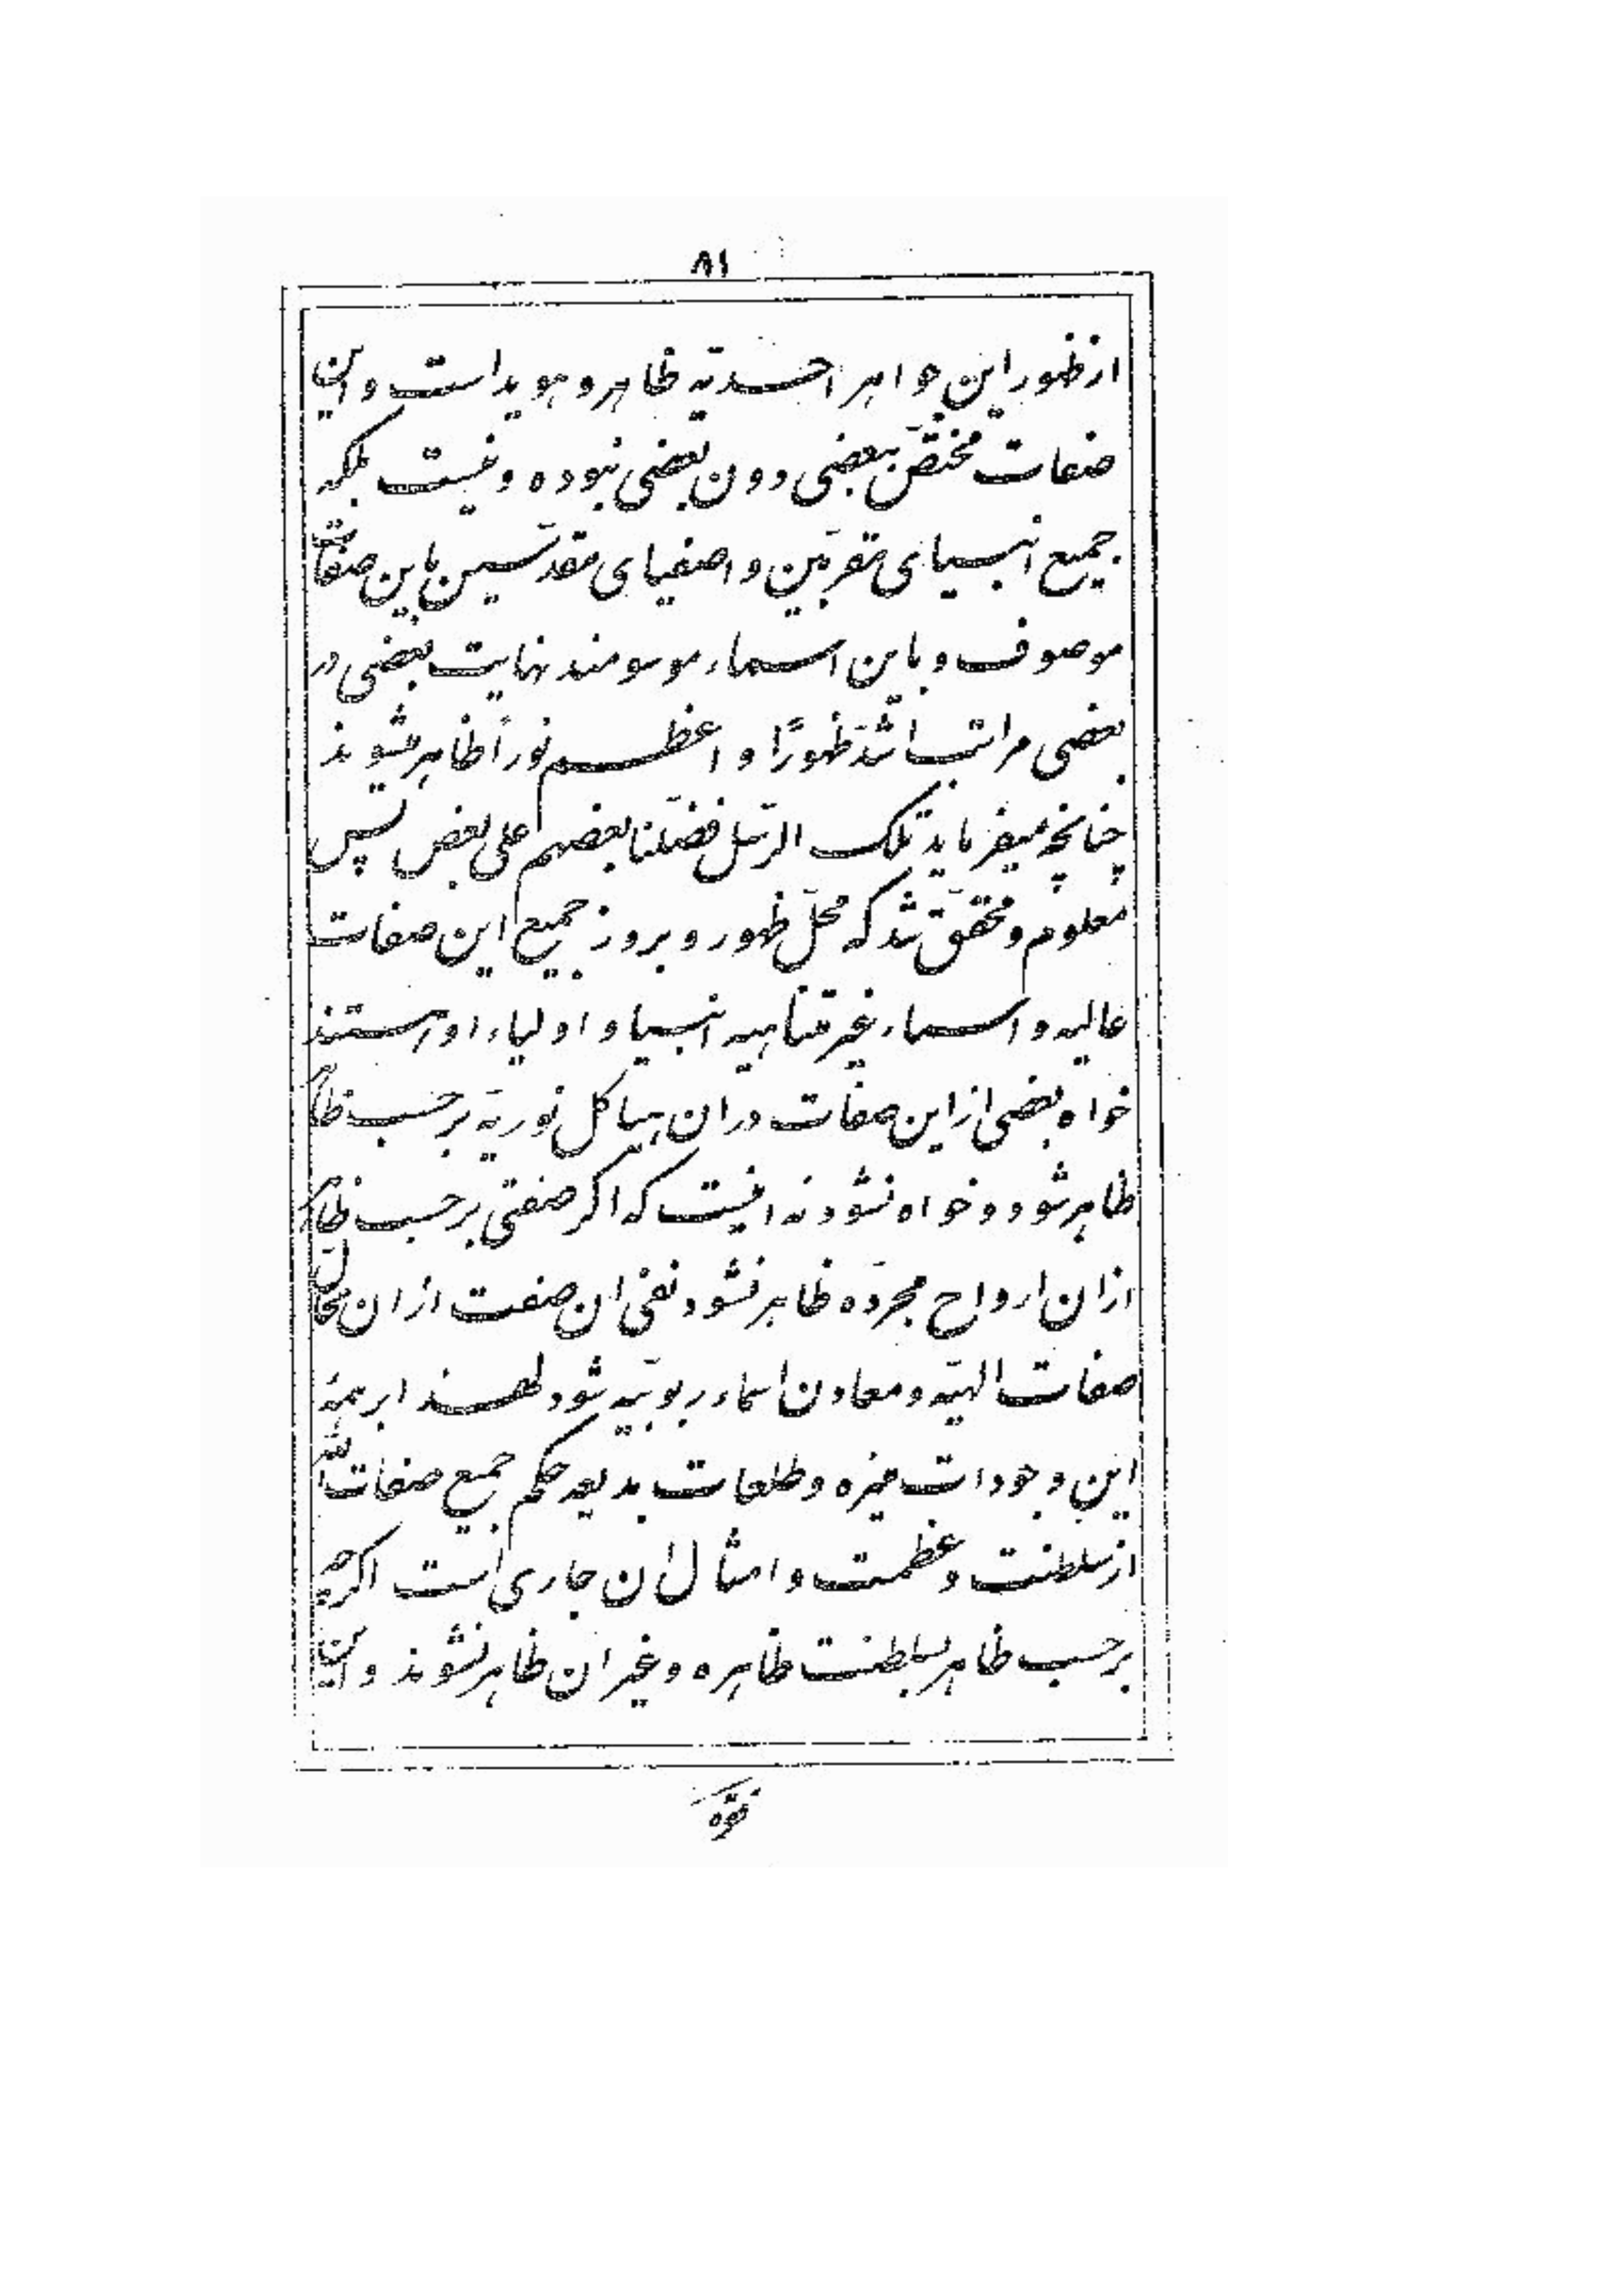 ٨١
از ظهور این جواهر احدیّه ظاهر و هویداست و این
صفات مختصّ ببعضی دون بعضی نبوده و نیست بلکه
جمیع انبیای مقرّبین و اصفیای مقدّسین باین صفات
موصوف و باین اسماء موسومند نهایت بعضی در
بعضی مراتب اشدّ ظهورًا و اعظم نورًا ظاهر میشوند
چنانچه میفرماید تلک الرّسل فضّلنا بعضهم علی بعض پس
معلوم و محقّق شد که محلّ ظهور و بروز جمیع این صفات
عالیه و اسماء غیر متناهیه انبیا و اولیاء او هستند
خواه بعضی از این صفات در ان هیاکل نوریّه بر حسب ظاهر
ظاهر شود و خواه نشود نه اینست که اکر صفتی بر حسب ظاهر
از ان ارواح مجرّده ظاهر نشود نفی ان صفت از ان محالّ
صفات الهیّه و معادن اسماء ربوبیّه شود لهذا بر همهٔ
این وجودات منیره و طلعات بدیعه حکم جمیع صفات اللّه
از سلطنت و عظمت و امثال ان جاری است اکرچه
بر حسب ظاهر بسلطنت ظاهره و غیر ان ظاهر نشوند و این
فقره